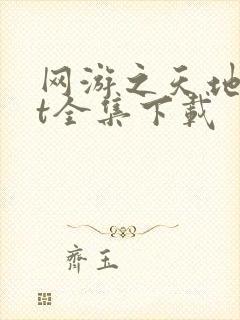 网游之天地
t全集下载
齐玉